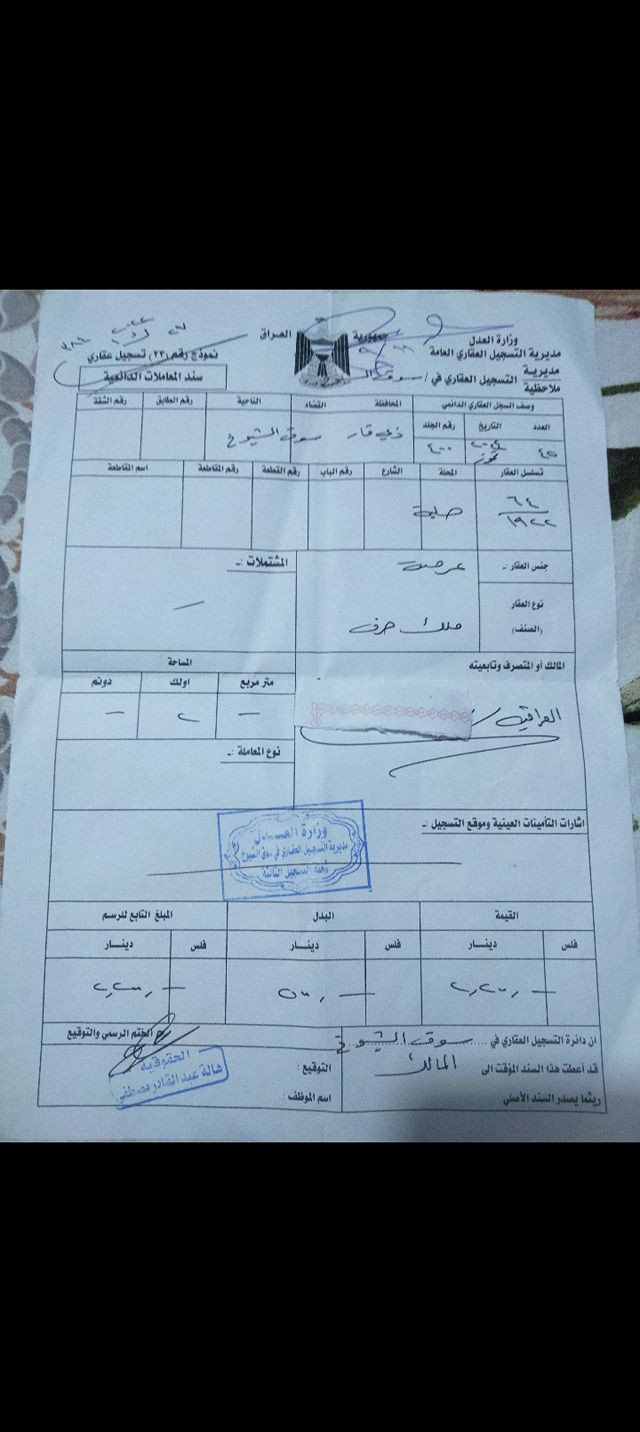 جمهورية العراق
وزارة العدل
مديرية التسجيل العقاري العامة
مديرية
التسجيل العقاري في / سوق
ملاحظية
نموذج رقم (٢٣) تسجيل عقاري
سند المعاملات الدائمية
وصف السجل العقاري الدائمي
المحافظة
القضاء
الناحية
رقم الطابق
رقم الشقة
العدد
التاريخ
رقم الجلد
٤٥
تموز
٤٠٠
ذي قار
سوق الشيوخ
تسلسل العقار
المحلة
الشارع
رقم الباب
رقم القطعة
رقم المقاطعة
اسم المقاطعة
٦٤
١٩٢٢
جنس العقار :-
عرصة
المشتملات :-
نوع العقار
(الصنف)
ملك صرف
المالك أو المتصرف وتابعيته
المساحة
متر مربع
اولك
دونم
العراقي /
نوع المعاملة :-
اشارات التأمينات العينية وموقع التسجيل :-
مديرية التسجيل العقاري في سوق الشيوخ
القيمة
البدل
المبلغ التابع للرسم
فلس
دينار
فلس
دينار
فلس
دينار
ان دائرة التسجيل العقاري في سوق الشيوخ
قد أعطت هذا السند المؤقت الى المالك
ريثما يصدر السند الأصلي
الختم الرسمي والتوقيع
التوقيع :
اسم الموظف :
الحقوقية
هالة عبد القادر مصطفى